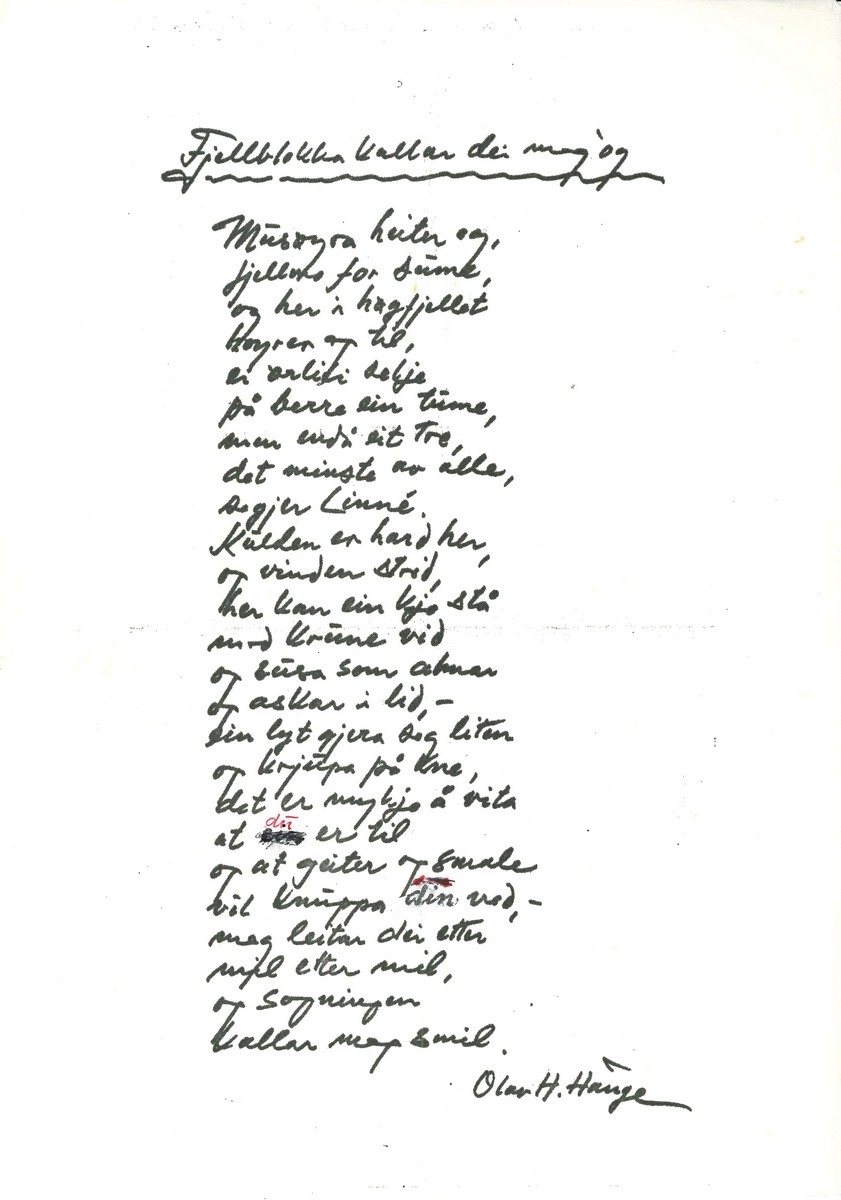 Fjellblokka kallar dei meg òg
Musøyra heiter eg,
fjellmo for sume,
og her i høgfjellet
høyrer eg til,
ei ørliti selje
på berre ein tume,
men endå eit tre,
det minste av alle,
segjer Linné.
Kulden er hard her,
og vinden strid,
her kan ein kje stå
med krune vid
og susa som almar
og askar i lid,-
ein lyt gjera seg liten
og krjupa på kne,
det er mykje å vita
at du er til
og at geiter og smale
vil knuppa din ved,-
meg leitar dei etter
mil etter mil,
og sogningen
kallar meg smil.
Olav H. Hauge